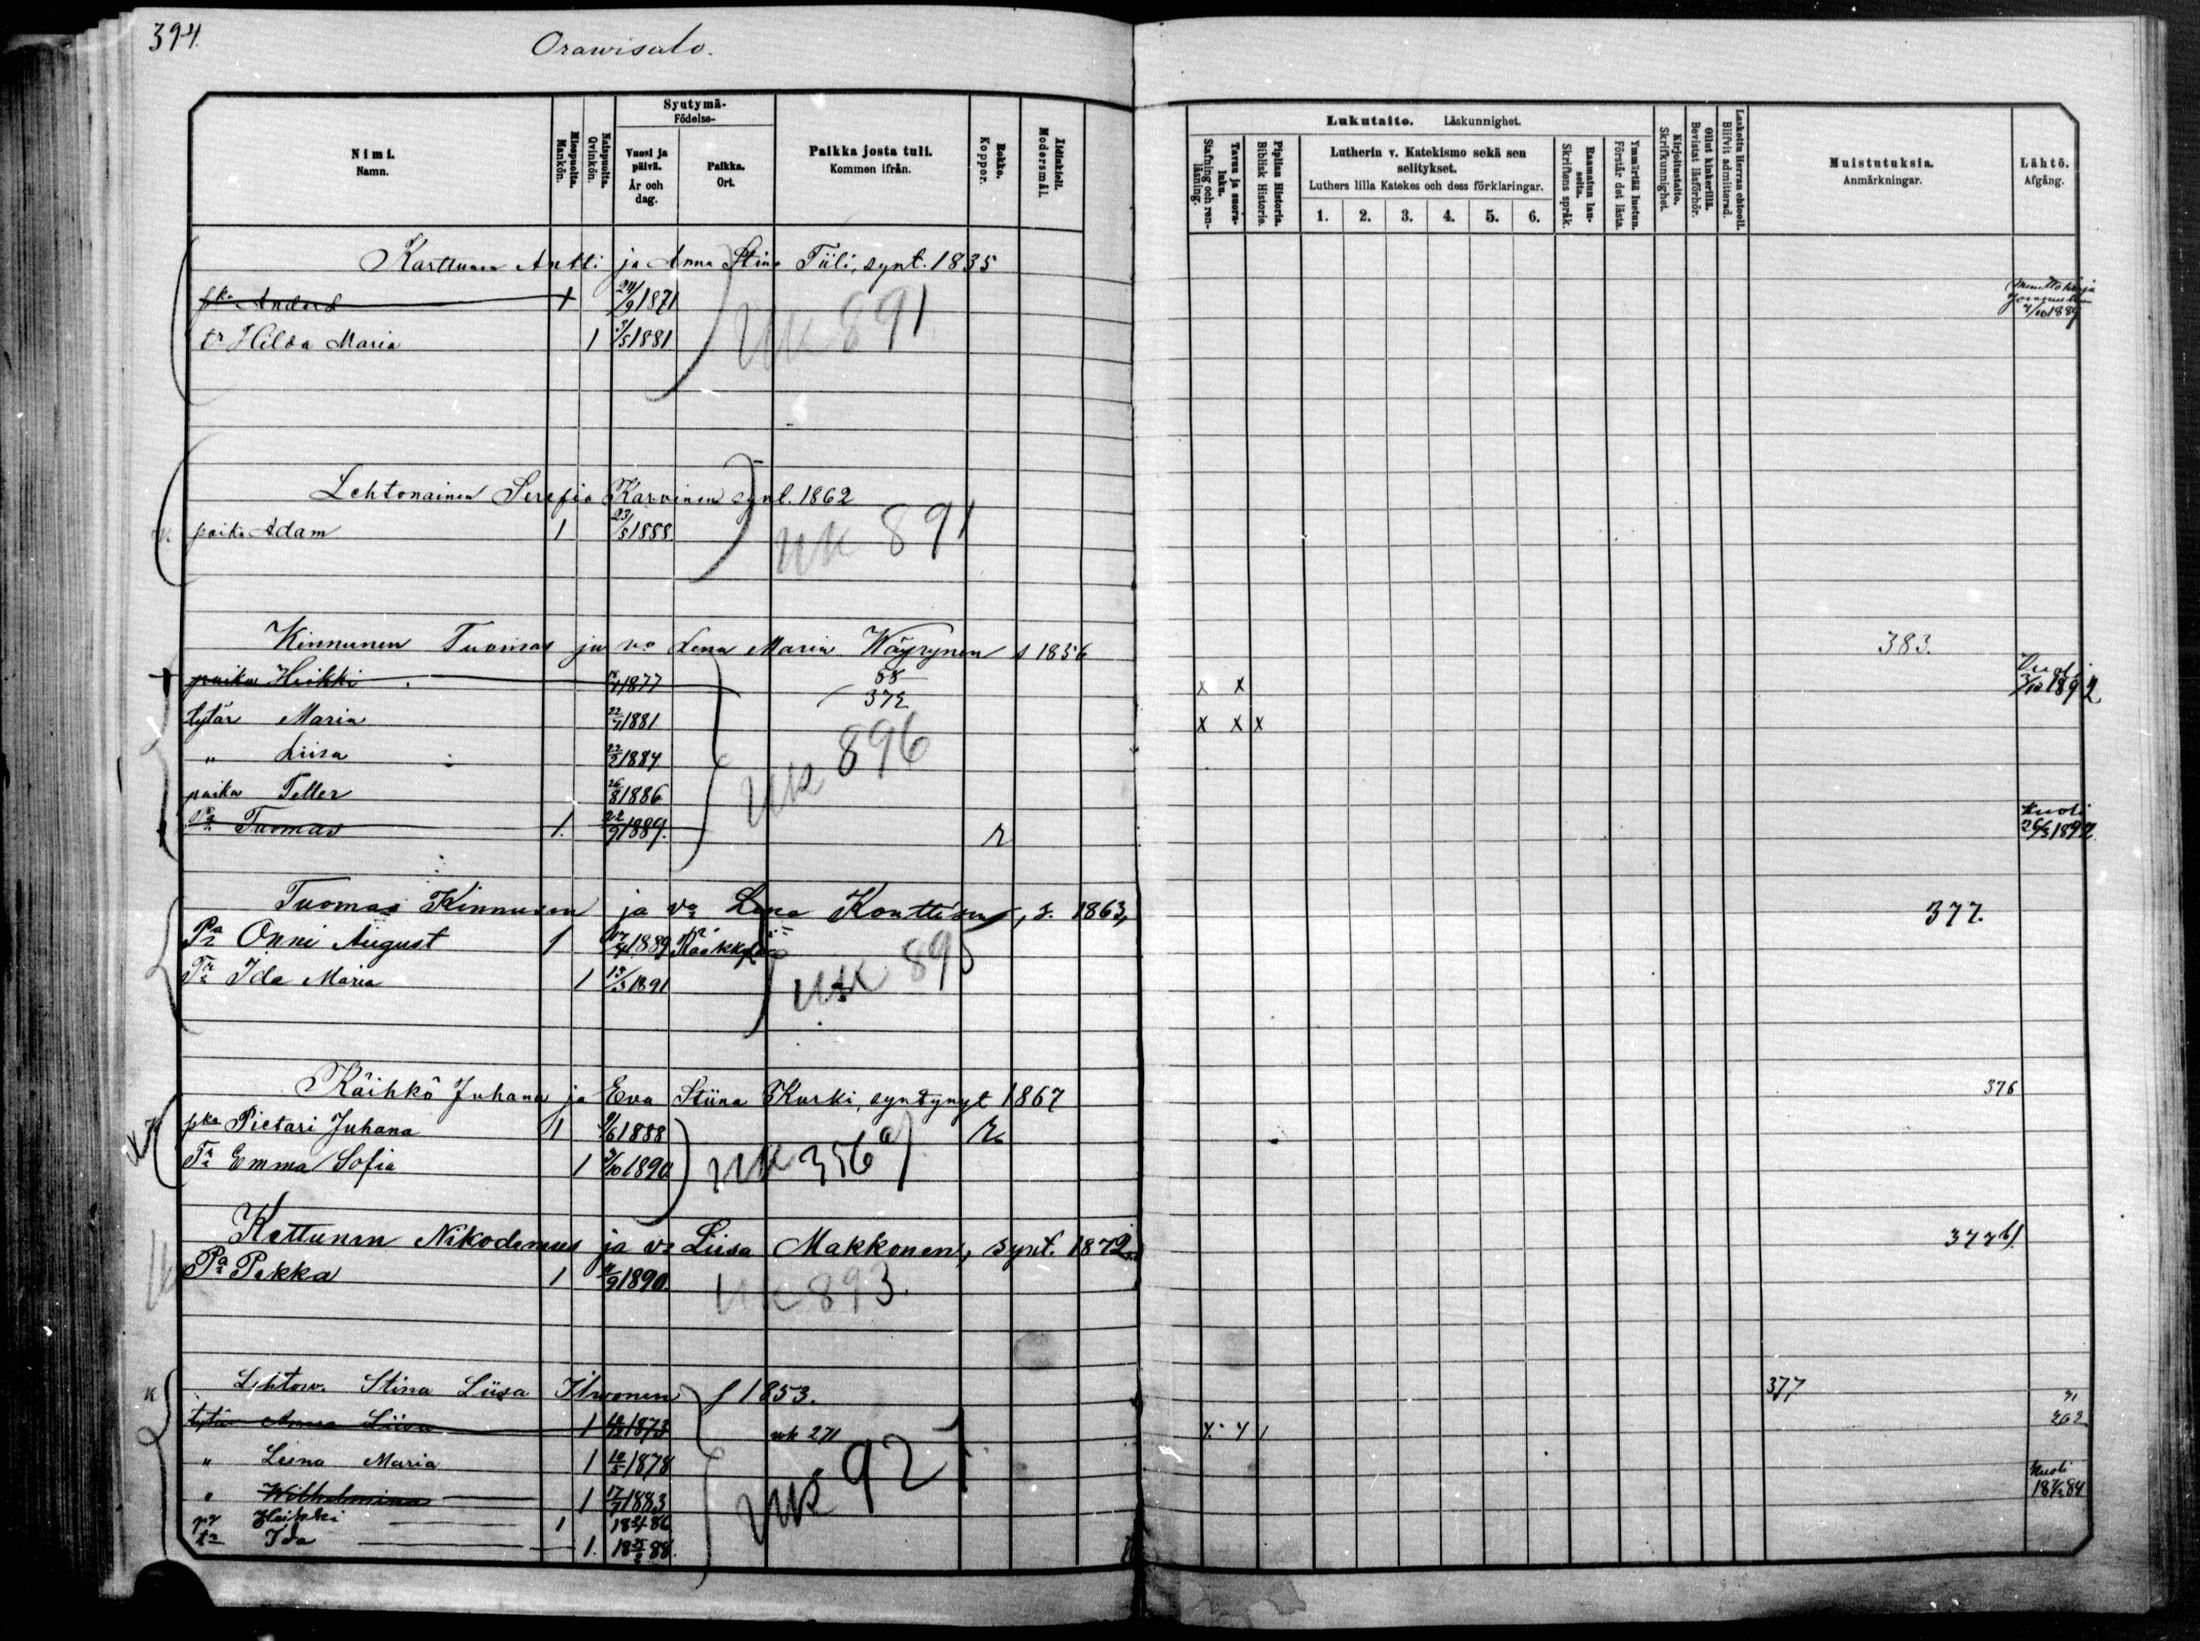 394.
Orawisalo.
Nimi. Namn.
Miespuolta. Mankön.
Naispuolta. Qvinkön.
Syntymä- Födelse-
Vuosi ja päivä. År och dag.
Paikka. Ort.
Paikka josta tuli. Kommen ifrån.
Rokko. Koppor.
Äidinkieli. Modersmål.
Lukutaito. Läskunnighet.
Tavuu ja suora-luku. Stafning och ren-läsning.
Piplian Historia. Biblisk Historie.
Lutherin v. Katekismo sekä sen selitykset.
Luthers lilla Katekes och dess förklaringar.
1. 2. 3. 4. 5. 6.
Raamatun lau-seita. Skriftens språk.
Ymmärtää luetun. Förstår det lästa.
Kirjoitustaito. Skrifkunnighet.
Ollut kinkerillä. Bevistat läsförhör.
Laskettu Herran ehtooll. Blifvit admitterad.
Muistutuksia. Anmärkningar.
Lähtö. Afgång.
Karttunen Antti ja Anna Stina Tiili, synt. 1835
pka Anders 1 24/9 1871 Muuttokirja 7/10 1889
tr Hilda Maria 1 3/5 1881 UK 891
Lehtonainen Serefia Karvinen synt. 1862
poika Adam 1 23/5 1888 UK 891
Kinnunen Tuomas ja vo Lena Maria Wäyrynen s 1856 383.
poika Heikki 1877 58 372 x x 1892
tytär Maria 22/7 1881 x x x
" Liisa 22/5 1884 UK 896
poika Petter 26/8 1886
Pa Tuomas 1. 22/9 1889. r Kuoli 26/3 1892
Tuomas Kinnunen ja va Lena Konttinen, s. 1863, 377.
Pa Onni August 1 1889 UK 895
Tr Ida Maria 1 13/3 1891
Käihkö Juhana ja Eva Stiina Kurki, syntynyt 1867 376
pka Pietari Juhana 1 9/6 1888 r.
Tr Emma Sofia 1 3/10 1890 UK 356 a)
Kettunen Nikodemus ja vo Liisa Makkonen, synt. 1872. 377 b)
Pa Pekka 1 11/9 1890. UK 893.
Lehtow. Stina Liisa Hirvonen s 1853. 377
tytär Anna Liisa 1 1873 uk 271 262
" Leena Maria 1 10/5 1878 UK 921
" Wilhelmina 1 17/7 1883 Kuoli 84
pa Heikki 1 86
tr Ida 1. 88.